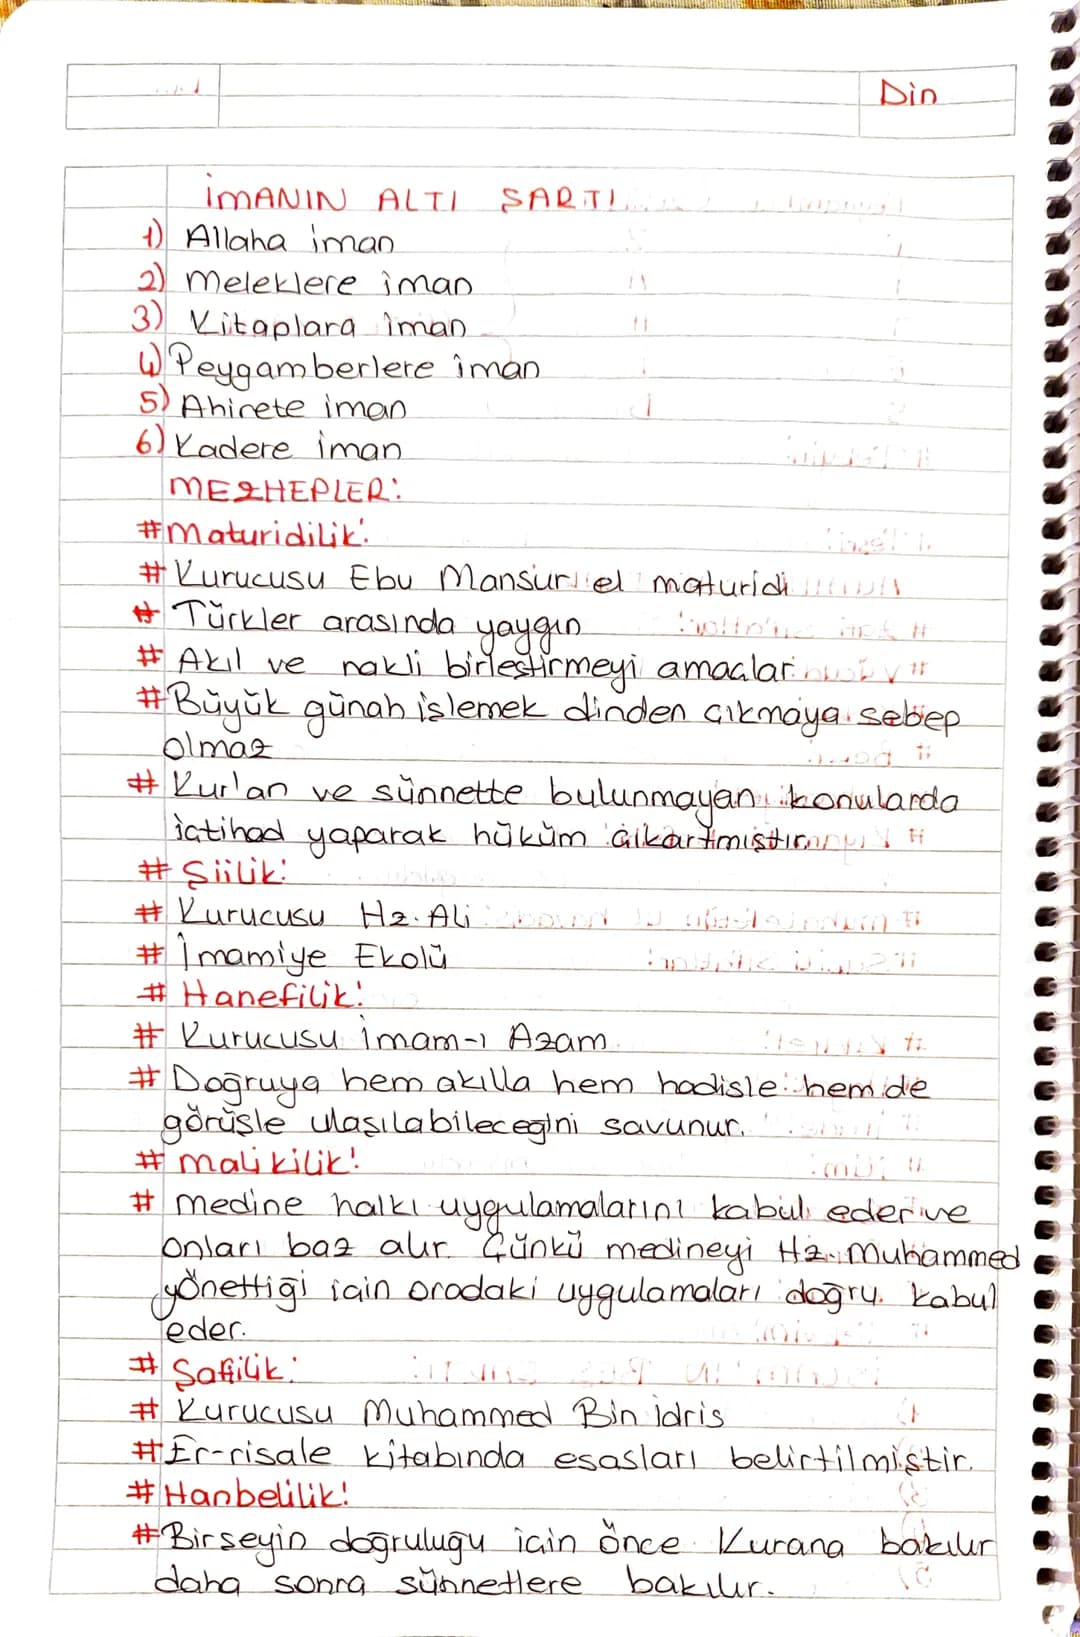 Din
İMANIN ALTI ŞARTI
1) Allaha iman
2) Meleklere iman
3) Kitaplara iman
4) Peygamberlere iman
5) Ahirete iman
6) Kadere iman
MEZHEPLER:
#Maturidilik:
# Kurucusu Ebu Mansur el maturidi
# Türkler arasında yaygın
# Akıl ve nakli birleştirmeyi amaçlar
#Büyük günah işlemek dinden çıkmaya sebep
olmaz
# Kur'an ve sünnette bulunmayan konularda
içtihad yaparak hüküm çıkartmıştır
# Şiilik:
# Kurucusu Hz. Ali
# İmamiye Ekolü
# Hanefilik:
# Kurucusu İmam-ı Azam
# Doğruya hem akılla hem hadisle hem de
görüşle ulaşılabileceğini savunur.
# Malikilik:
# Medine halkı uygulamalarını kabul eder ve
onları baz alır. Çünkü medineyi Hz. Muhammed
yönettiği için oradaki uygulamaları doğru kabul
eder.
# Şafilik:
# Kurucusu Muhammed Bin idris
#Er-risale kitabında esasları belirtilmiştir.
# Hanbelilik:
#Bir seyin doğruluğu için önce Kurana bakılır
daha sonra sünnetlere bakılır.